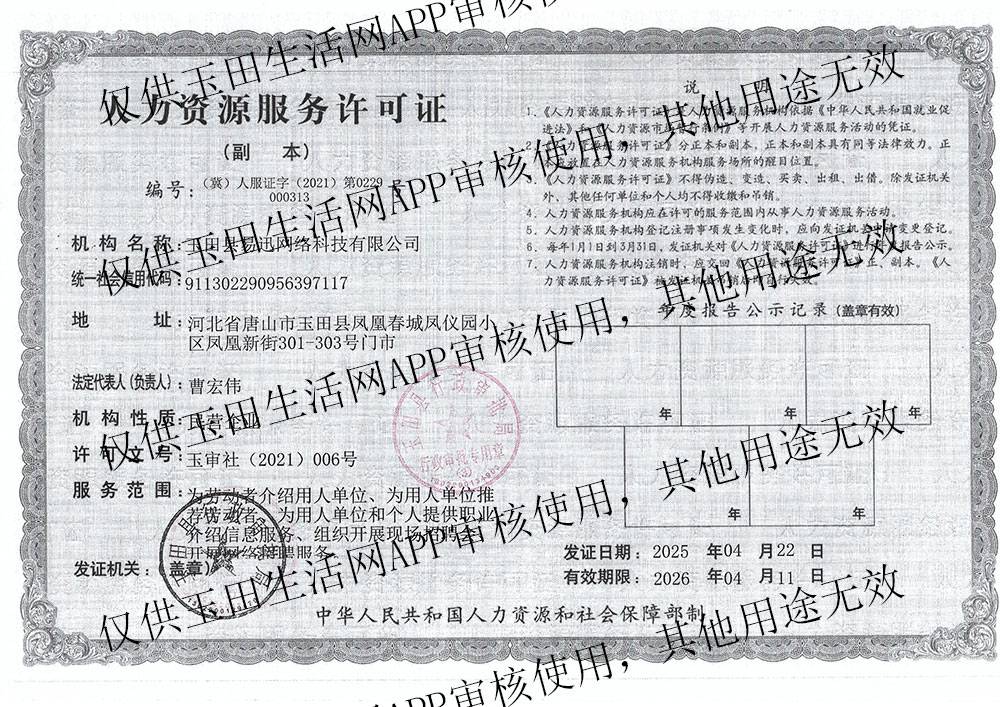 人力资源服务许可证
（副 本）
编号：（冀）人服证字（2021）第0229000313号
机构名称：玉田县易迅网络科技有限公司
统一社会信用代码：911302290956397117
地 址：河北省唐山市玉田县凤凰春城凤仪园小
区凤凰新街301-303号门市
法定代表人（负责人）：曹宏伟
机构性质：民营企业
许可文号：玉审社（2021）006号
服务范围：为劳动者介绍用人单位、为用人单位推
荐劳动者、为用人单位和个人提供职业
介绍信息服务、组织开展现场招聘会、
开展网络招聘服务
发证机关：（盖章）
说 明
1、《人力资源服务许可证》是人力资源服务机构依据《中华人民共和国就业促
进法》和《人力资源市场暂行条例》等开展人力资源服务活动的凭证。
2、《人力资源服务许可证》分正本和副本，正本和副本具有同等法律效力。正
本应放置在人力资源服务机构服务场所的醒目位置。
3、《人力资源服务许可证》不得伪造、变造、买卖、出租、出借。除发证机关
外，其他任何单位和个人均不得收缴和吊销。
4、人力资源服务机构应在许可的服务范围内从事人力资源服务活动。
5、人力资源服务机构登记注册事项发生变化时，应向发证机关申请变更登记。
6、每年1月1日到3月31日，发证机关对《人力资源服务许可证》进行年度报告公示。
7、人力资源服务机构注销时，应交回《人力资源服务许可证》正、副本。《人
力资源服务许可证》被发证机关吊销后即自行失效。
年度报告公示记录（盖章有效）
年 年 年
年 年
发证日期：2025 年 04 月 22 日
有效期限：2026 年 04 月 11 日
中华人民共和国人力资源和社会保障部制
玉田县行政审批局
行政审批专用章
仅供玉田生活网APP审核使用，其他用途无效
仅供玉田生活网APP审核使用，其他用途无效
仅供玉田生活网APP审核使用，其他用途无效
仅供玉田生活网APP审核使用，其他用途无效